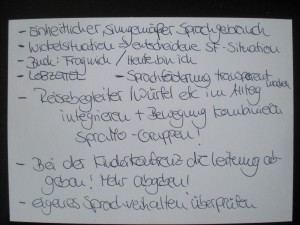 - Einheitlicher, sinngemäßer Sprachgebrauch
- Wickelsituation = entscheidene SF-Situation
- Buch: Fragmich / Heute bin ich
- Lobzettel - Sprachförderung transparent machen
- Reisebegleiter (Würfel etc im Alltag
integrieren + Bewegung kombinieren
Gruppen!
- Bei der Kinderkonferenz die Leitung ab-
geben! Mehr abgeben!
- eigenes Sprachverhalten überprüfen